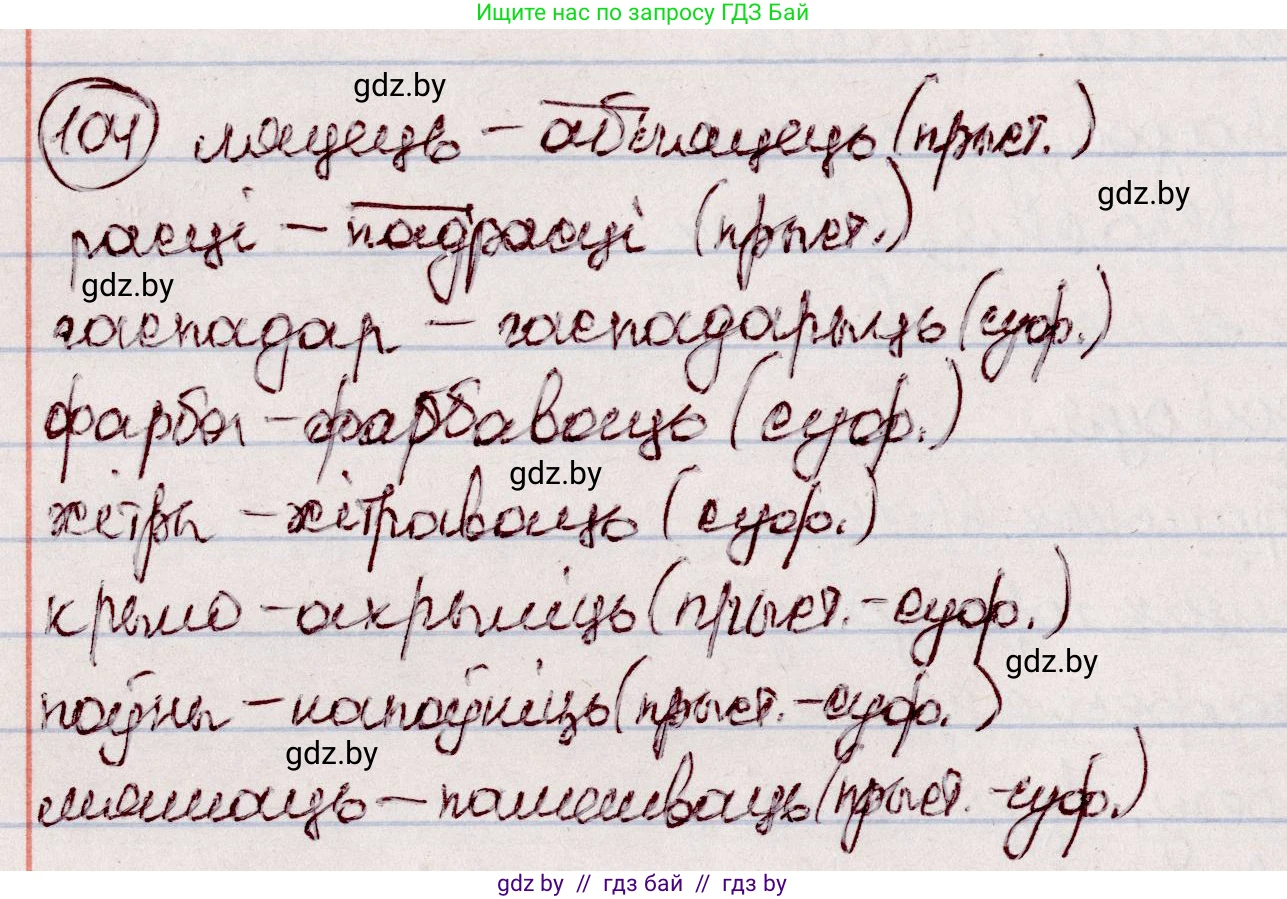 Ищите нас по запросу ГДЗ Бай
gdz.by
104 ляцець – абляцець (прыст.)
gdz.by
расці – падрасці (прыст.)
gdz.by
гаспадар – гаспадарыць (суф.)
фарба – фарбаваць (суф.)
gdz.by
хітры – хітраваць (суф.)
крыло – акрыліць (прыст.-суф.)
gdz.by
поўны – напоўніць (прыст.-суф.)
gdz.by
мяшаць – памешваць (прыст.-суф.)
gdz by // гдз бай // гдз by